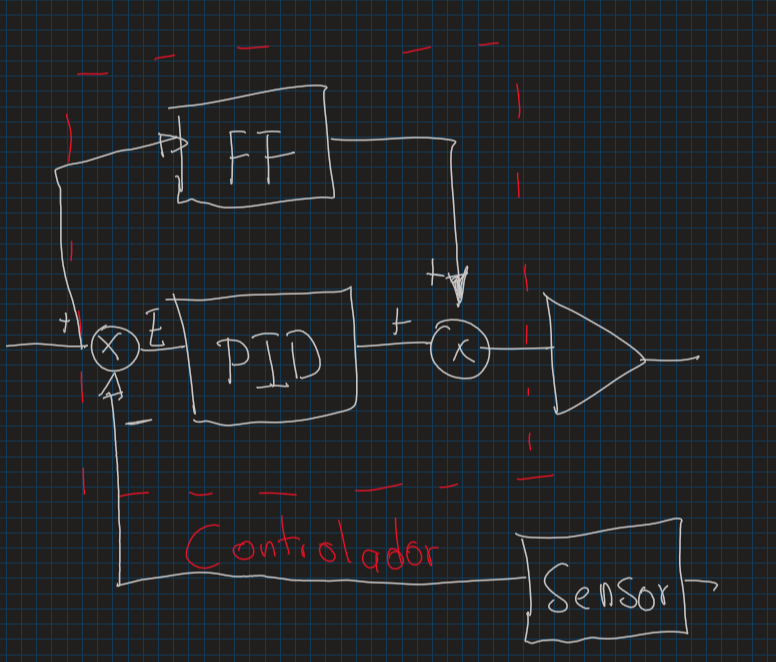 FF
+
+ E PID +
-
Controlador
Sensor